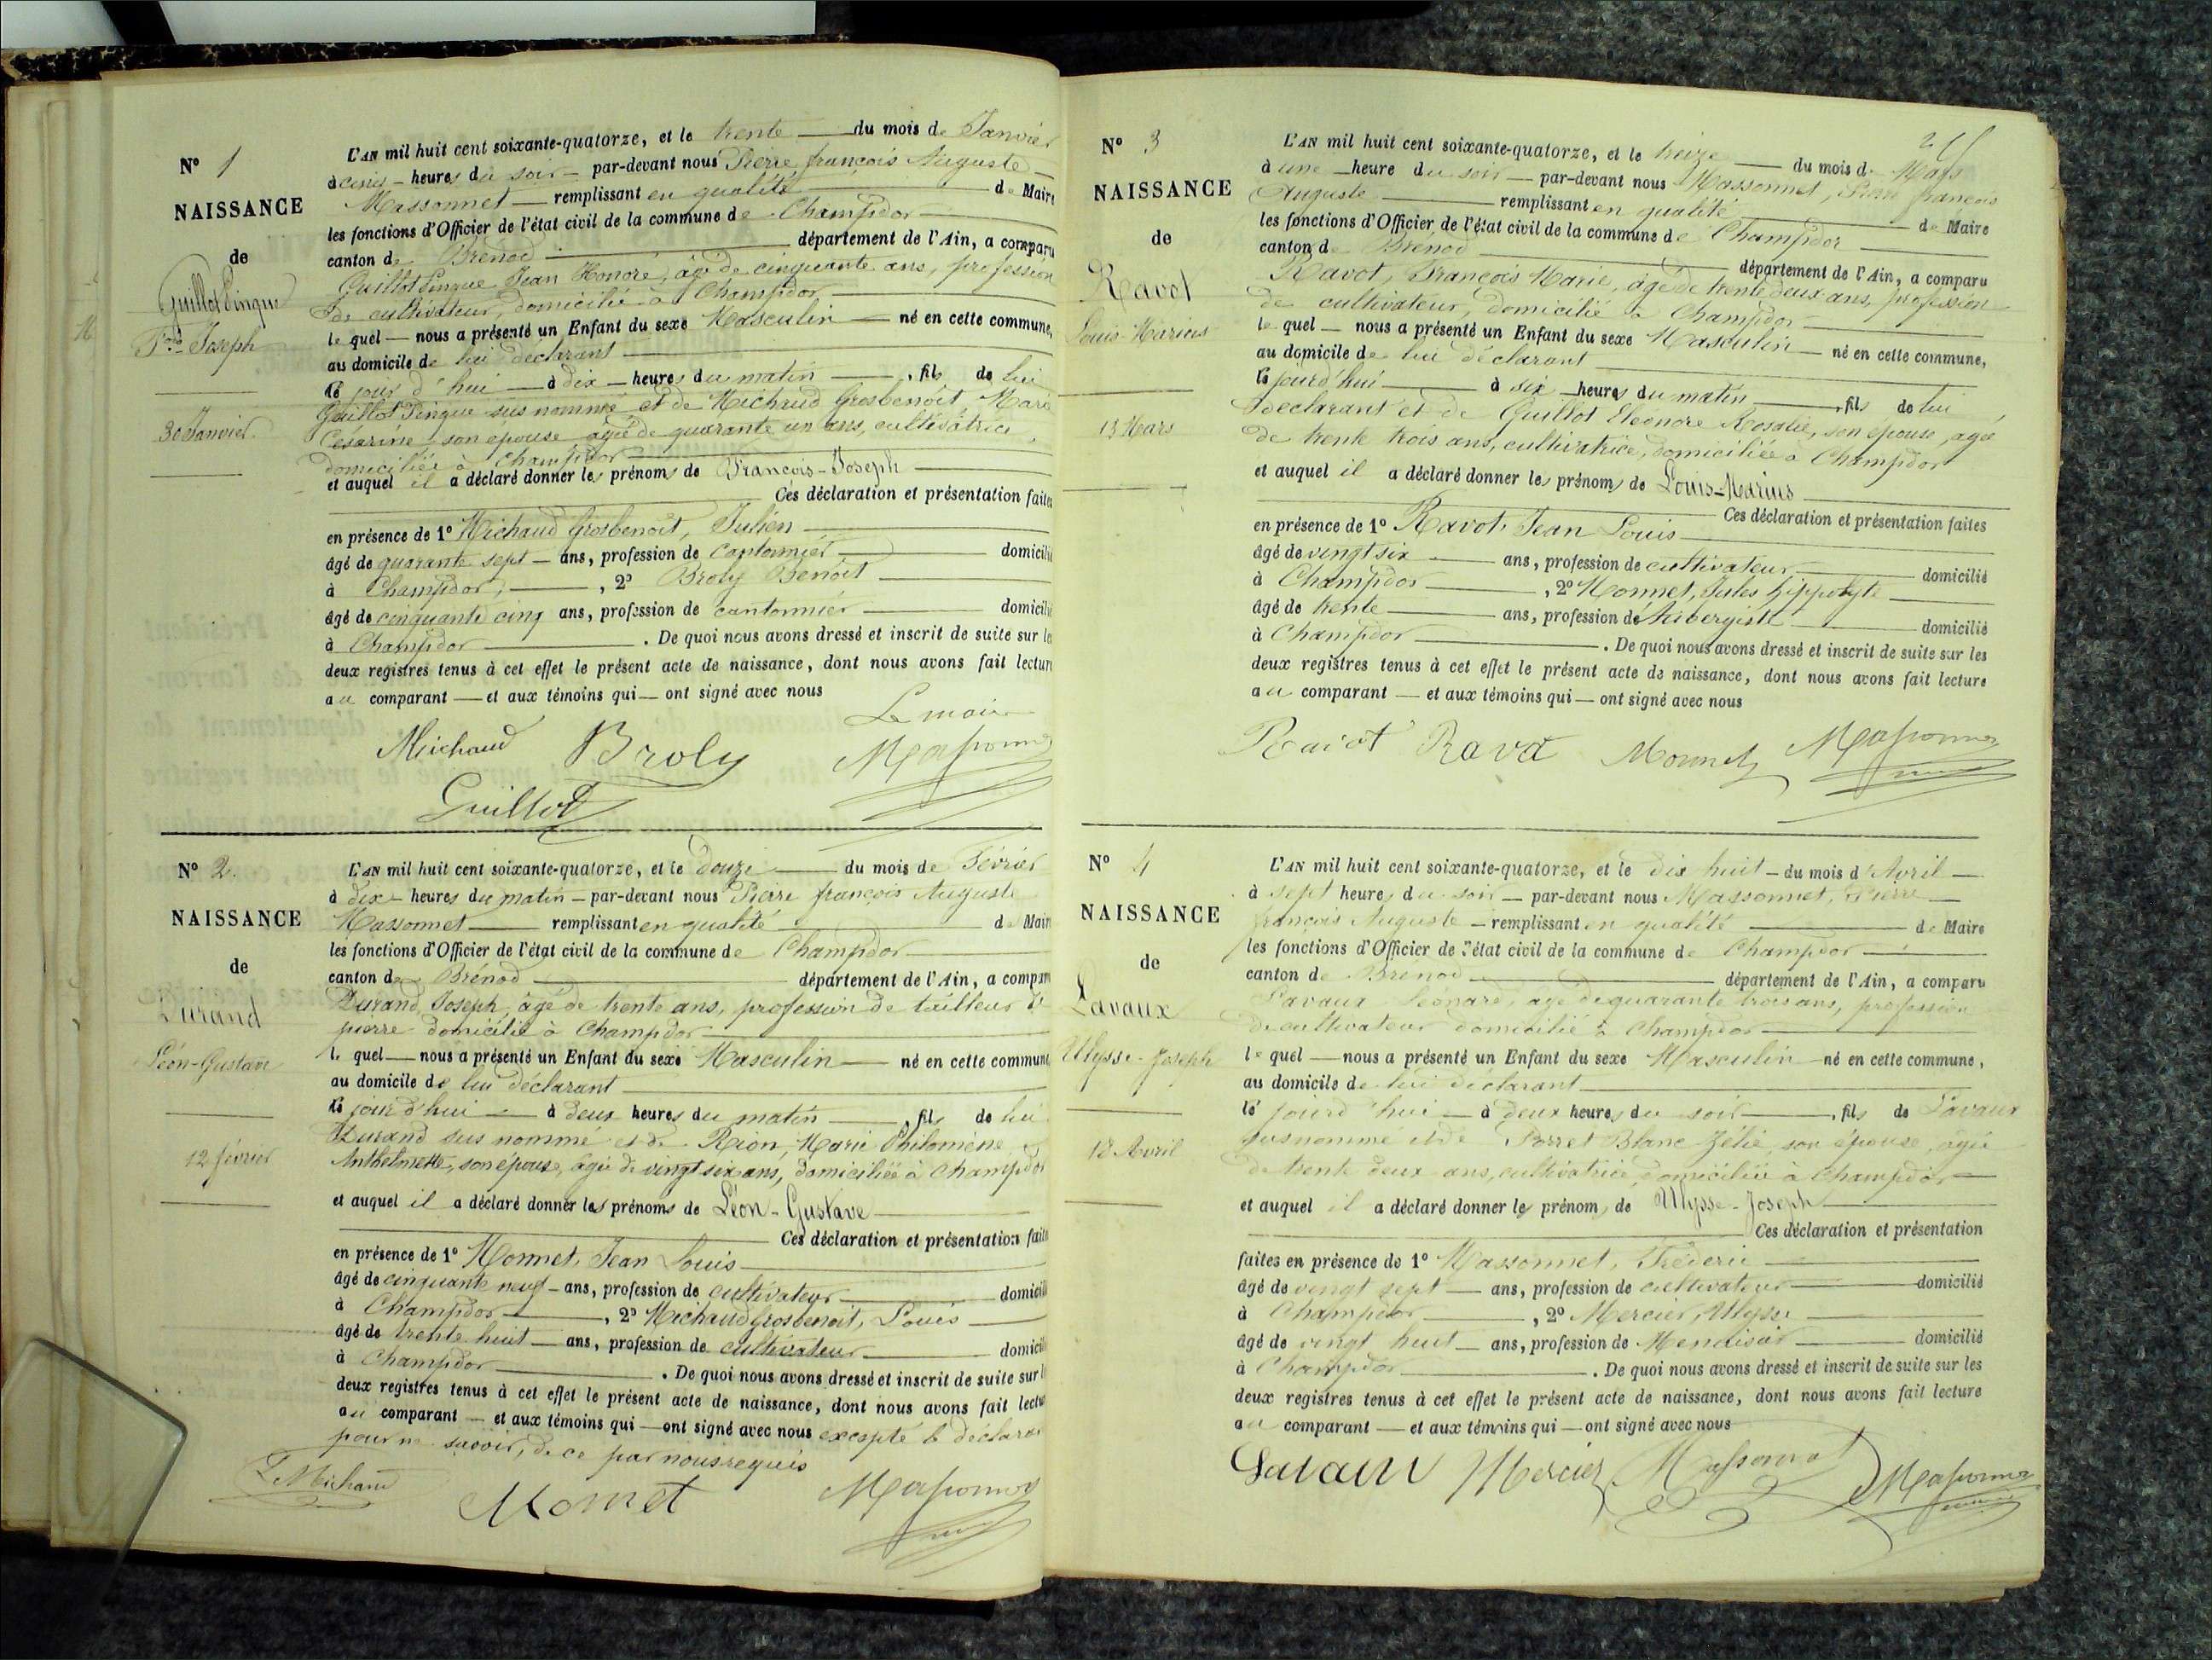 N° 1
NAISSANCE
de
Guillot Pingue
F.ois Joseph
30 Janvier
L'AN mil huit cent soixante-quatorze, et le trente du mois de Janvier
à cinq heures du soir par-devant nous Pierre françois Auguste
Massonnet remplissant en qualité de Maire
les fonctions d'Officier de l'état civil de la commune de Champdor
canton de Brénod département de l'Ain, a comparu
Guillot Pingue Jean Honoré, âgé de cinquante ans, profession
de cultivateur, domicilié à Champdor
le quel nous a présenté un Enfant du sexe Masculin né en cette commune,
au domicile de lui déclarant
le jour d'hui à dix heures du matin, fils de lui
Guillot Pingue sus nommé et de Michaud Grosbenoit, Marie
Césarine son épouse âgée de quarante un ans, cultivatrice
domiciliée à Champdor
et auquel il a déclaré donner les prénoms de François-Joseph
Ces déclaration et présentation faites
en présence de 1° Michaud Grosbenoit, Julien
âgé de quarante sept ans, profession de cantonnier domicilié
à Champdor, 2° Broly Benoit
âgé de cinquante cinq ans, profession de cantonnier domicilié
à Champdor. De quoi nous avons dressé et inscrit de suite sur les
deux registres tenus à cet effet le présent acte de naissance, dont nous avons fait lecture
au comparant et aux témoins qui ont signé avec nous
Le maire
Michaud Broly Massonnet
Guillot
N° 2.
NAISSANCE
de
Durand
Léon-Gustave
12 février
L'AN mil huit cent soixante-quatorze, et le douze du mois de Février
à dix heures du matin par-devant nous Pierre françois Auguste
Massonnet remplissant en qualité de Maire
les fonctions d'Officier de l'état civil de la commune de Champdor
canton de Brénod département de l'Ain, a comparu
Durand, Joseph, âgé de trente ans, profession de tailleur de
pierre domicilié à Champdor
le quel nous a présenté un Enfant du sexe Masculin né en cette commune
au domicile de lui déclarant
le jour d'hui à deux heures du matin, fils de lui
Durand sus nommé et de Rion, Marie Philomène
Anthelmette, son épouse, âgée de vingt six ans, domiciliée à Champdor
et auquel il a déclaré donner les prénoms de Léon-Gustave
Ces déclaration et présentation faites
en présence de 1° Monnet, Jean Louis
âgé de cinquante neuf ans, profession de cultivateur domicilié
à Champdor, 2° Michaud Grosbenoit, Louis
âgé de trente huit ans, profession de cultivateur domicilié
à Champdor. De quoi nous avons dressé et inscrit de suite sur les
deux registres tenus à cet effet le présent acte de naissance, dont nous avons fait lecture
au comparant et aux témoins qui ont signé avec nous excepté le déclarant
pour ne savoir, de ce par nous requis
L Michaud Monnet Massonnet
N° 3
NAISSANCE
de
Ravot
Louis-Marius
13 Mars
L'AN mil huit cent soixante-quatorze, et le treize du mois de Mars
à une heure du soir par-devant nous Massonnet, Pierre françois
Auguste remplissant en qualité de Maire
les fonctions d'Officier de l'état civil de la commune de Champdor
canton de Brénod département de l'Ain, a comparu
Ravot, François Marie, âgé de trente deux ans, profession
de cultivateur, domicilié à Champdor
le quel nous a présenté un Enfant du sexe Masculin né en cette commune,
au domicile de lui déclarant
le jourd'hui à six heures du matin, fils de lui
déclarant et de Guillot Eléonore Rosalie, son épouse, agée
de trente trois ans, cultivatrice, domiciliée à Champdor
et auquel il a déclaré donner les prénoms de Louis-Marius
Ces déclaration et présentation faites
en présence de 1° Ravot, Jean Louis
âgé de vingt six ans, profession de cultivateur domicilié
à Champdor, 2° Monnet, Jules hippolyte
âgé de trente ans, profession de Aubergiste domicilié
à Champdor. De quoi nous avons dressé et inscrit de suite sur les
deux registres tenus à cet effet le présent acte de naissance, dont nous avons fait lecture
au comparant et aux témoins qui ont signé avec nous
Ravot Ravot Monnet Massonnet
N° 4
NAISSANCE
de
Lavaux
Ulysse-Joseph
18 Avril
L'AN mil huit cent soixante-quatorze, et le dix huit du mois d'Avril
à sept heures du soir par-devant nous Massonnet, Pierre
françois Auguste remplissant en qualité de Maire
les fonctions d'Officier de l'état civil de la commune de Champdor
canton de Brénod département de l'Ain, a comparu
Lavaux Léonard, agé de quarante trois ans, profession
de cultivateur domicilié à Champdor
le quel nous a présenté un Enfant du sexe Masculin né en cette commune,
au domicile de lui déclarant
le jourd'hui à deux heures du soir, fils de Lavaux
sus nommé et de Perret Blanc Zélie, son épouse, agée
de trente deux ans, cultivatrice, domiciliée à Champdor
et auquel il a déclaré donner les prénoms de Ulysse-Joseph
Ces déclaration et présentation
faites en présence de 1° Massonnet, Fréderic
âgé de vingt sept ans, profession de cultivateur domicilié
à Champdor, 2° Mercier, Ulysse
âgé de vingt huit ans, profession de Menuisier domicilié
à Champdor. De quoi nous avons dressé et inscrit de suite sur les
deux registres tenus à cet effet le présent acte de naissance, dont nous avons fait lecture
au comparant et aux témoins qui ont signé avec nous
Lavaux Mercier Massonnet Massonnet